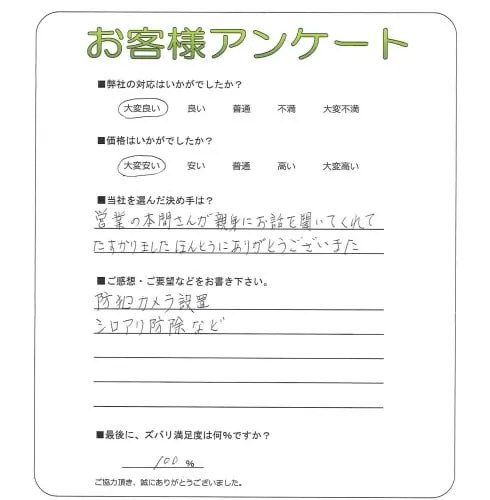 お客様アンケート
■弊社の対応はいかがでしたか？
大変良い 良い 普通 不満 大変不満
■価格はいかがでしたか？
大変安い 安い 普通 高い 大変高い
■当社を選んだ決め手は？
営業の本間さんが親身にお話を聞いてくれて
たすかりました ほんとうにありがとうございまた
■ご感想・ご要望などをお書き下さい。
防犯カメラ設置
シロアリ防除など
■最後に、ズバリ満足度は何％ですか？
100 %
ご協力頂き、誠にありがとうございました。